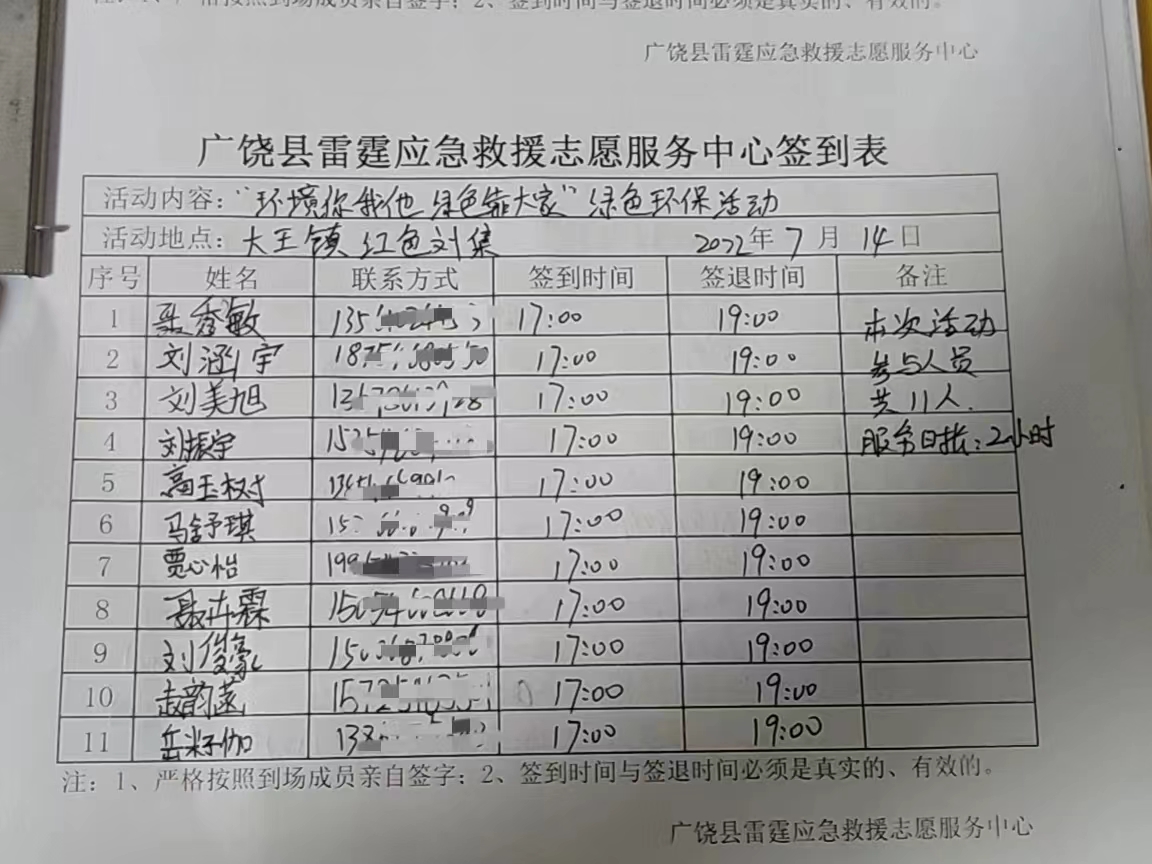 严格按照到场成员亲自签字；2、签到时间与签退时间必须是真实的、有效的。
广饶县雷霆应急救援志愿服务中心
广饶县雷霆应急救援志愿服务中心签到表
活动内容：“环境你我他 绿色靠大家”绿色环保活动
活动地点：大王镇 红色刘集 2022年7月14日
序号 姓名 联系方式 签到时间 签退时间 备注
1 聂秀敏 17:00 19:00 本次活动
2 刘涵宇 17:00 19:00 参与人员
3 刘美旭 17:00 19:00 共11人.
4 刘振宇 17:00 19:00 服务日指:2小时
5 高玉树 17:00 19:00
6 马舒琪 17:00 19:00
7 贾心怡 17:00 19:00
8 聂卉霖 17:00 19:00
9 刘俊豪 17:00 19:00
10 赵韵涵 17:00 19:00
11 岳籽伽 17:00 19:00
注：1、严格按照到场成员亲自签字；2、签到时间与签退时间必须是真实的、有效的。
广饶县雷霆应急救援志愿服务中心